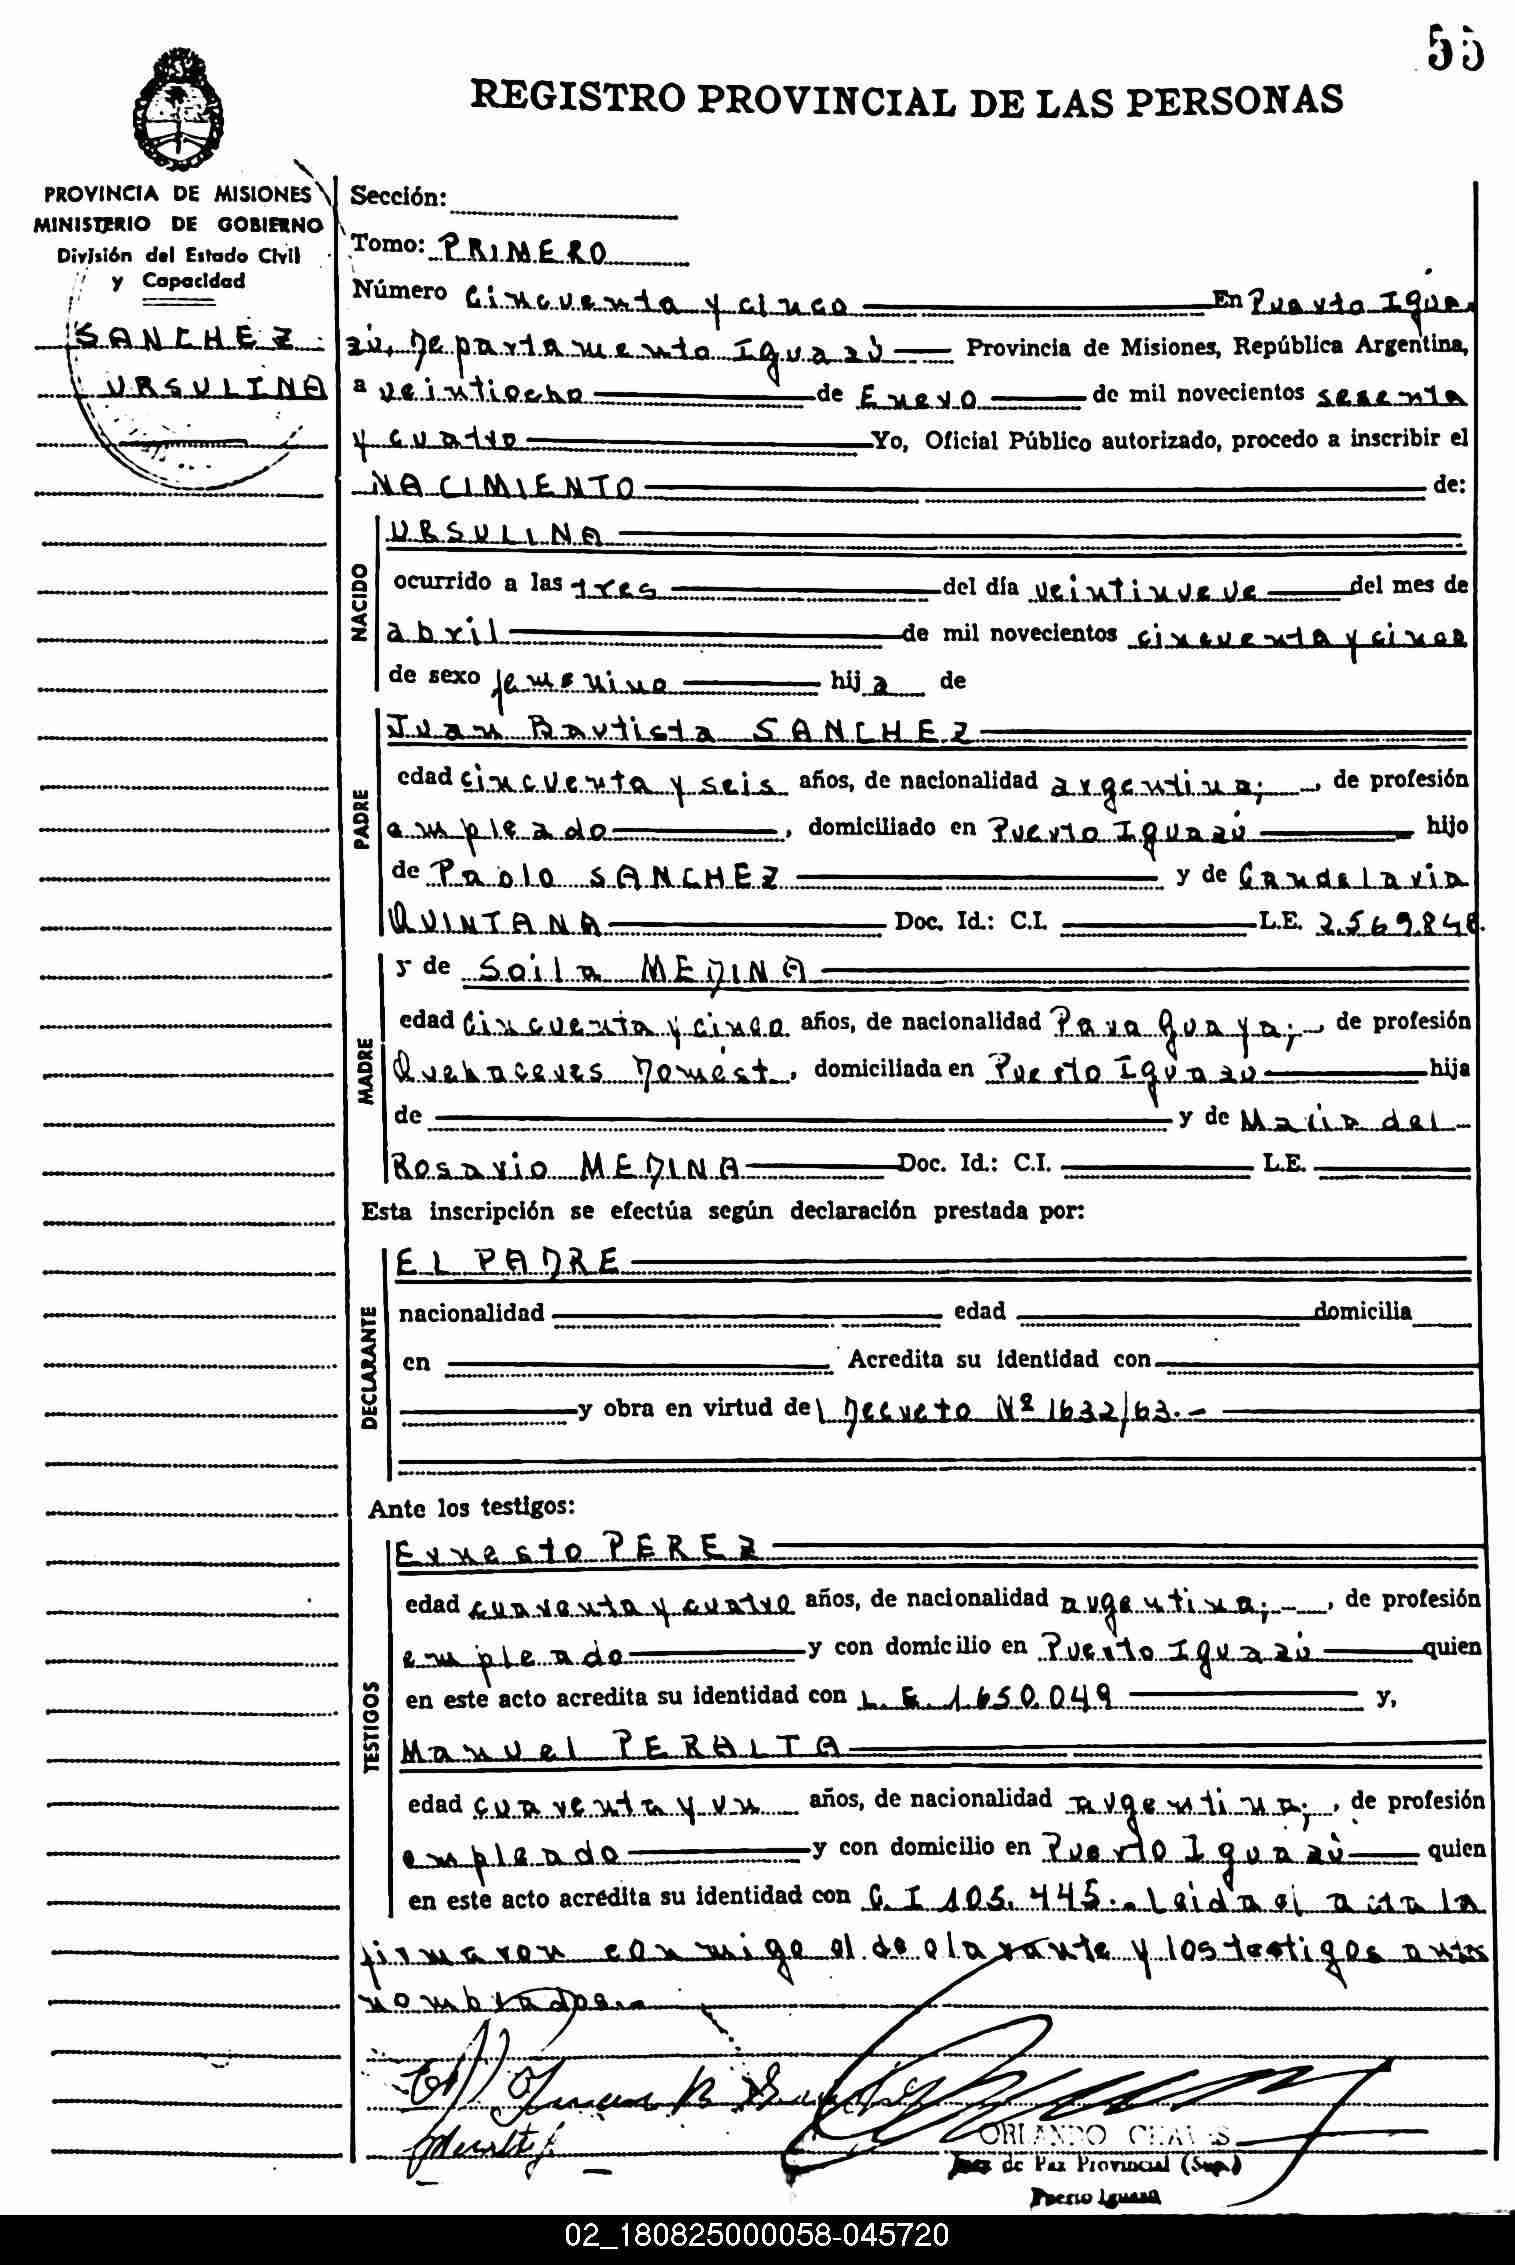 55
REGISTRO PROVINCIAL DE LAS PERSONAS
PROVINCIA DE MISIONES
MINISTERIO DE GOBIERNO
División del Estado Civil
y Capacidad
SANCHEZ
URSULINA
Sección:
Tomo: PRIMERO
Número Cincuenta y cinco En Puerto Igua
zú, Departamento Iguazú Provincia de Misiones, República Argentina,
a veintiocho de Enero de mil novecientos sesenta
y cuatro Yo, Oficial Público autorizado, procedo a inscribir el
NACIMIENTO de:
NACIDO
URSULINA
ocurrido a las tres del día veintinueve del mes de
abril de mil novecientos cincuenta y cinco
de sexo femenino hija de
PADRE
Juan Bautista SANCHEZ
edad cincuenta y seis años, de nacionalidad argentina; , de profesión
empleado , domiciliado en Puerto Iguazú hijo
de Paolo SANCHEZ y de Candelaria
QUINTANA Doc. Id.: C.I. L.E. 2.569.848.
MADRE
y de Soila MEDINA
edad Cincuenta y cinco años, de nacionalidad Paraguaya; , de profesión
Quehaceres Domést. , domiciliada en Puerto Iguazu hija
de y de Maria del
Rosario MEDINA Doc. Id.: C.I. L.E.
Esta inscripción se efectúa según declaración prestada por:
DECLARANTE
EL PADRE
nacionalidad edad domicilia
en Acredita su identidad con
y obra en virtud del Decreto Nº 1632/63.-
Ante los testigos:
TESTIGOS
Ernesto PEREZ
edad cuarenta y cuatro años, de nacionalidad argentina;- , de profesión
empleado y con domicilio en Puerto Iguazú quien
en este acto acredita su identidad con L.E. 1.650.049 y,
Manuel PERALTA
edad cuarenta y un años, de nacionalidad argentina; , de profesión
empleado y con domicilio en Puerto Iguazú quien
en este acto acredita su identidad con C.I 105.445.- Leida el acta la
firmaron conmigo el declarante y los testigos antes
nombrados.-
Juan B Sanchez
Peralta
ORLANDO CHAVES
Juez de Paz Provincial (Sup.)
Puerto Iguazú
02_180825000058-045720